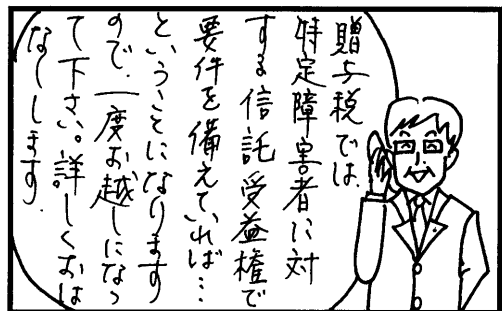 贈与税では、
特定障害者に対
する信託受益権で
要件を備えていれば…
ということになります
ので、一度お越しになっ
て下さい。詳しくおは
なしします。